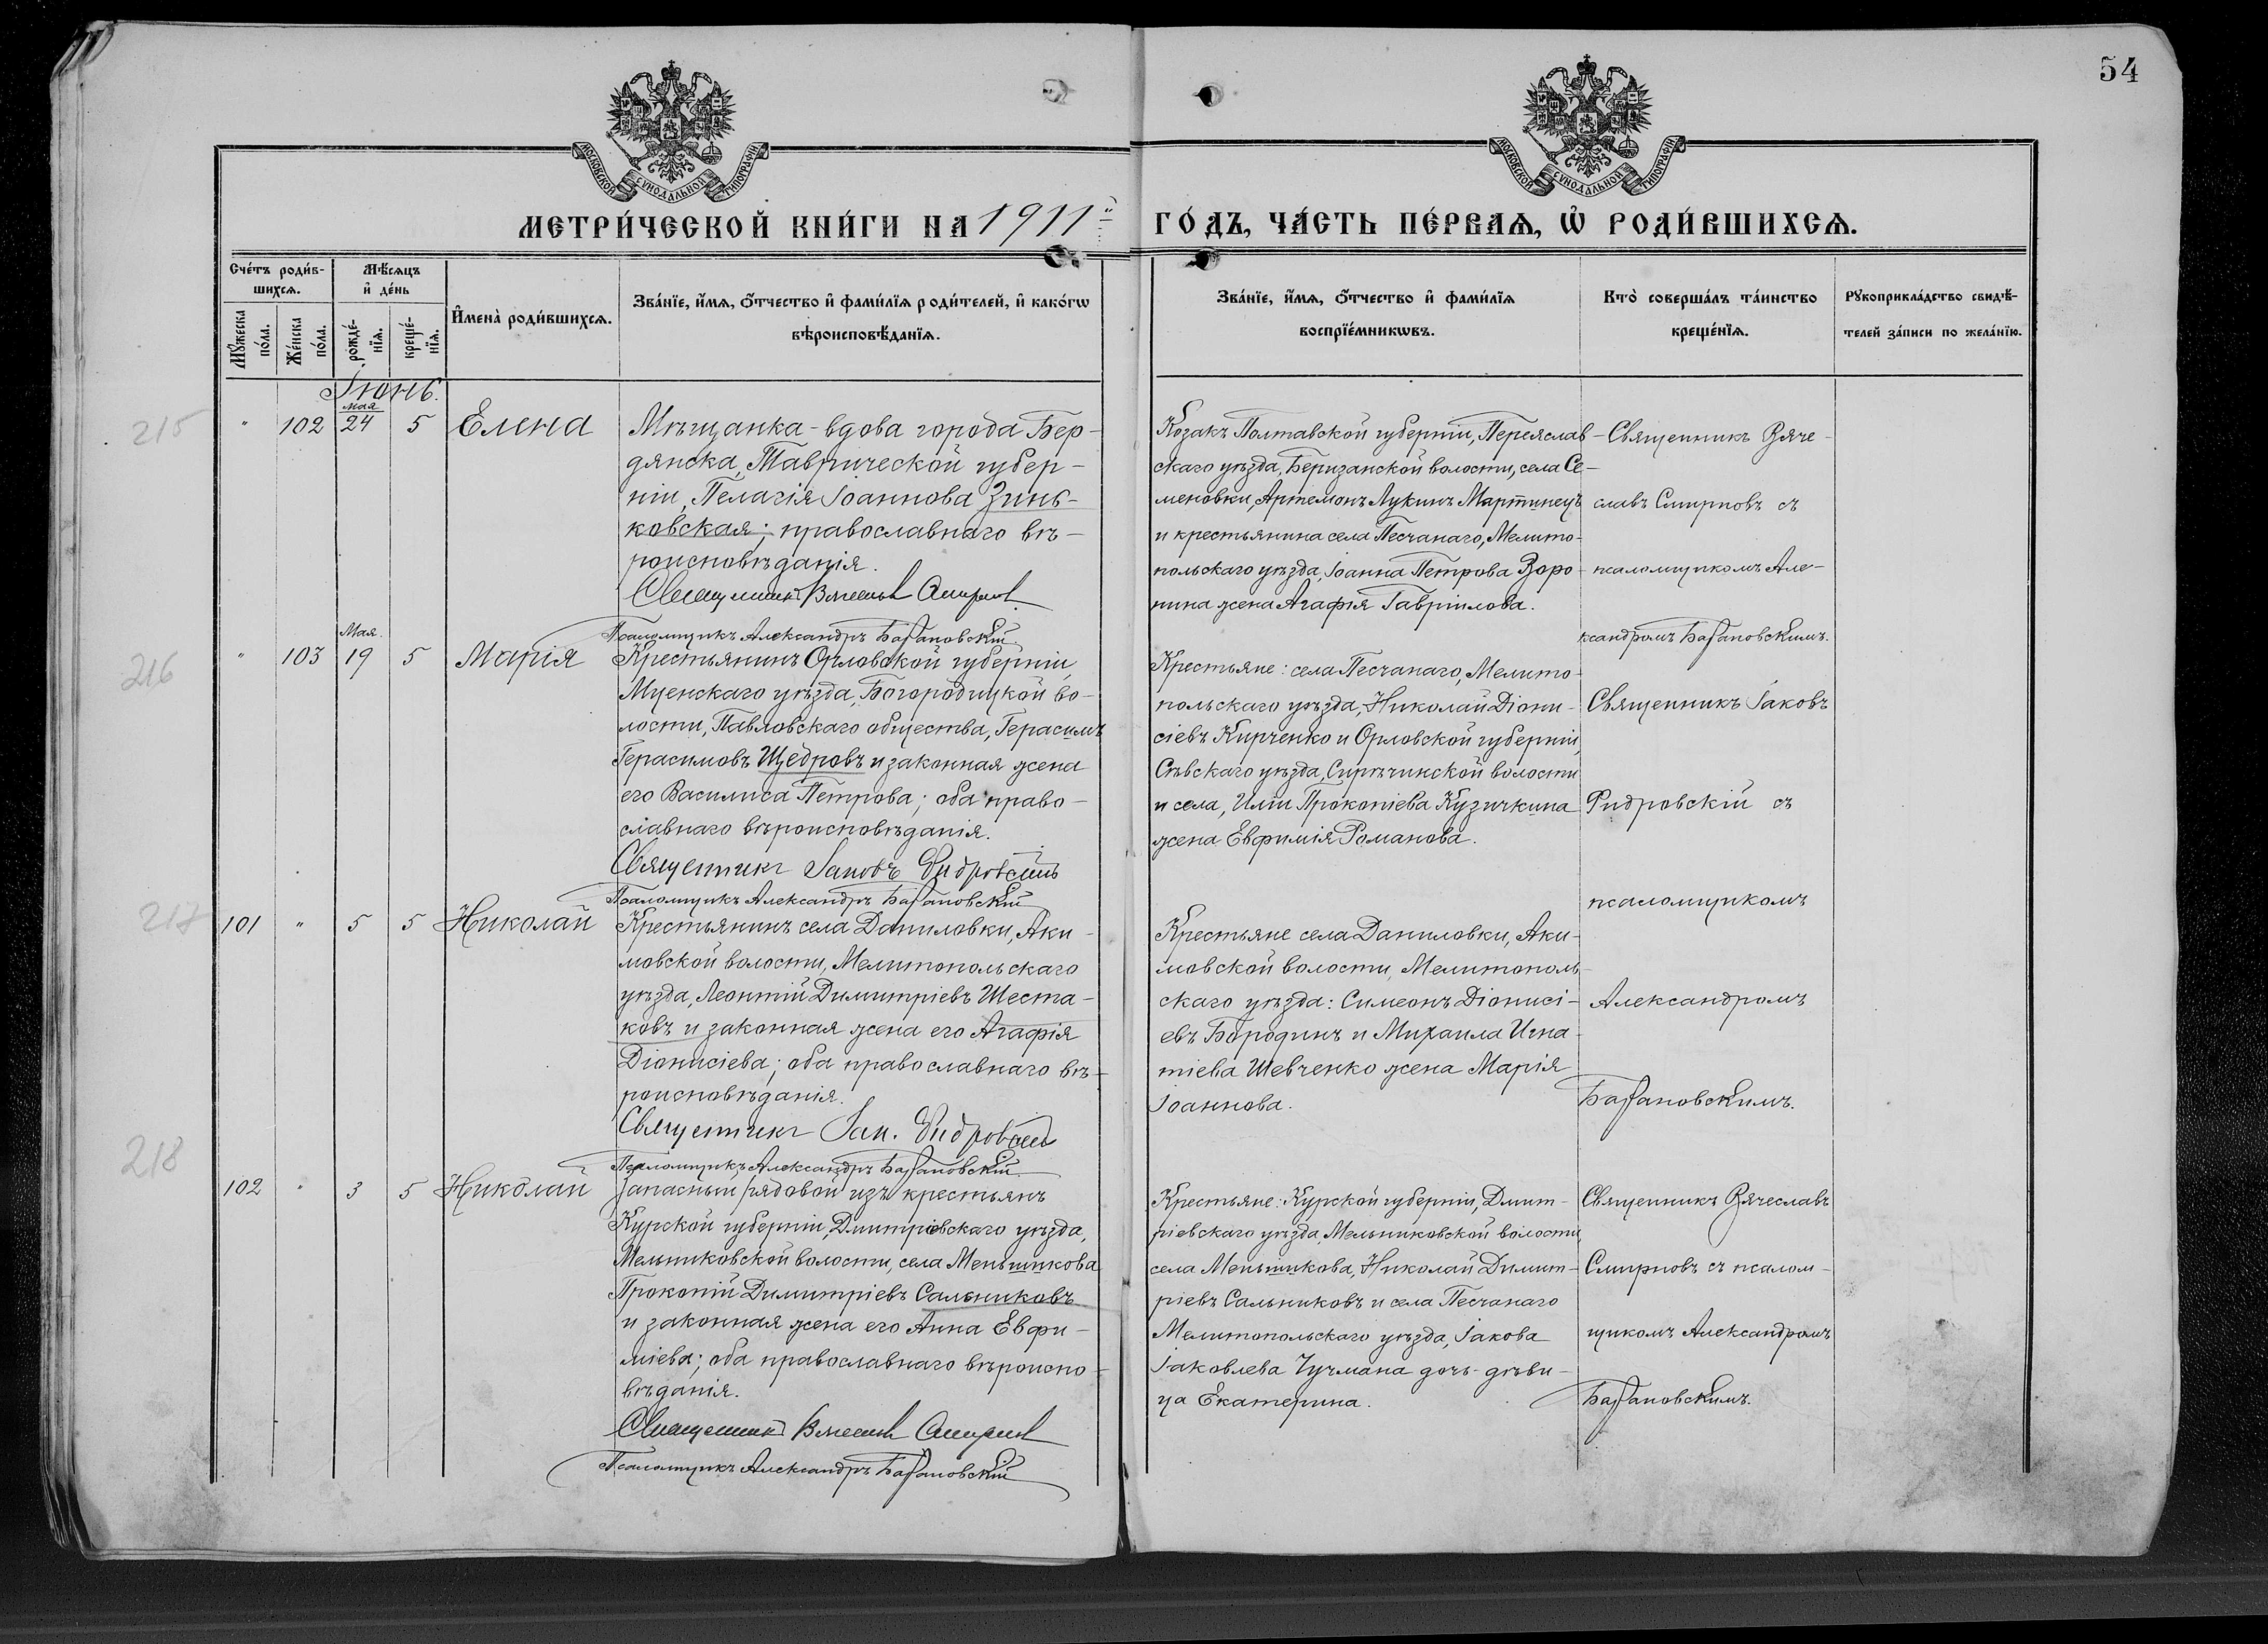 54
МОСКОВСКОЙ СѴНОДАЛЬНОЙ ТИПОГРАФІИ
МОСКОВСКОЙ СѴНОДАЛЬНОЙ ТИПОГРАФІИ
МЕТРИ́ЧЕСКОЙ КНИ́ГИ НА 1911 й ГО́ДЪ, ЧА́СТЬ ПЕ́РВАѦ, Ѡ҆ РОДИ́ВШИХСѦ.
Сче́тъ роди́в-
шихсѧ.
Мꙋ́жеска по́ла.
Же́нска по́ла.
Мѣ́сѧцъ
и҆ де́нь
рожде́-нїѧ.
креще́-нїѧ.
И҆мена̀ роди́вшихсѧ.
Зва́нїе, и҆́мѧ, ѻ҆́тчество и҆ фами́лїѧ роди́телей, и҆ како́гѡ
вѣроисповѣ́данїѧ.
Зва́нїе, и҆́мѧ, ѻ҆́тчество и҆ фами́лїѧ
воспрїе́мникѡвъ.
Кто̀ соверша́лъ та́инство
креще́нїѧ.
Рꙋкоприкла́дство свидѣ́-
телей за́писи по жела́нїю.
Іюнь.
215
" 102 мая 24 5 Елена
Мѣщанка-вдова города Бер-
дянска, Таврической губер-
ніи, Пелагія Іоаннова Зинь-
ковская; православнаго вѣ-
роисповѣданія.
Священникъ Вячеславъ Смирновъ
Псаломщикъ Александръ Базановскій
Козакъ Полтавской губерніи, Переяслав-
скаго уѣзда, Беризанской волости, села Се-
меновки, Артемонъ Лукинъ Мартинецъ
и крестьянина села Песчанаго, Мелито-
польскаго уѣзда, Іоанна Петрова Воро-
нина жена Агафія Гавріилова.
Священникъ Вяче-
славъ Смирновъ съ
псаломщикомъ Але-
ксандромъ Базановскимъ.
216
" 103 Мая. 19 5 Марія
Крестьянинъ Орловской губерніи,
Мценскаго уѣзда, Богородицкой во-
лости, Павловскаго общества, Герасимъ
Герасимовъ Щедровъ и законная жена
его Василиса Петрова; оба право-
славнаго вѣроисповѣданія.
Священникъ Іаковъ Ѳидровскій
Псаломщикъ Александръ Базановскій
Крестьяне: села Песчанаго, Мелито-
польскаго уѣзда, Николай Діони-
сіевъ Кирченко и Орловской губерніи,
Сѣвскаго уѣзда, Сирѣчинской волости
и села, Иліи Прокопіева Кузичкина
жена Евфимія Романова.
Священникъ Іаковъ
Ѳидровскій съ
псаломщикомъ
Александромъ
Базановскимъ.
217
101 " 5 5 Николай
Крестьянинъ села Даниловки, Аки-
мовской волости, Мелитопольскаго
уѣзда, Леонтій Димитріевъ Шеста-
ковъ и законная жена его Агафія
Діонисіева; оба православнаго вѣ-
роисповѣданія.
Священникъ Іак. Ѳидровскій
Псаломщикъ Александръ Базановскій
Крестьяне села Даниловки, Аки-
мовской волости, Мелитополь-
скаго уѣзда: Симеонъ Діонисі-
евъ Бородинъ и Михаила Игна-
тіева Шевченко жена Марія
Іоаннова.
218
102 " 3 5 Николай
Запасный рядовой изъ крестьянъ
Курской губерніи, Дмитріевскаго уѣзда,
Мельниковской волости, села Меньшикова
Прокопій Димитріевъ Сальниковъ
и законная жена его Анна Евфи-
міева; оба православнаго вѣроиспо-
вѣданія.
Священникъ Вячеславъ Смирновъ
Псаломщикъ Александръ Базановскій
Крестьяне: Курской губерніи, Дмит-
ріевскаго уѣзда, Мельниковской волости,
села Меньшикова, Николай Димит-
ріевъ Сальниковъ и села Песчанаго
Мелитопольскаго уѣзда, Іакова
Іаковлева Чучмана дочь-дѣви-
ца Екатерина.
Священникъ Вячеславъ
Смирновъ съ псалом-
щикомъ Александромъ
Базановскимъ.